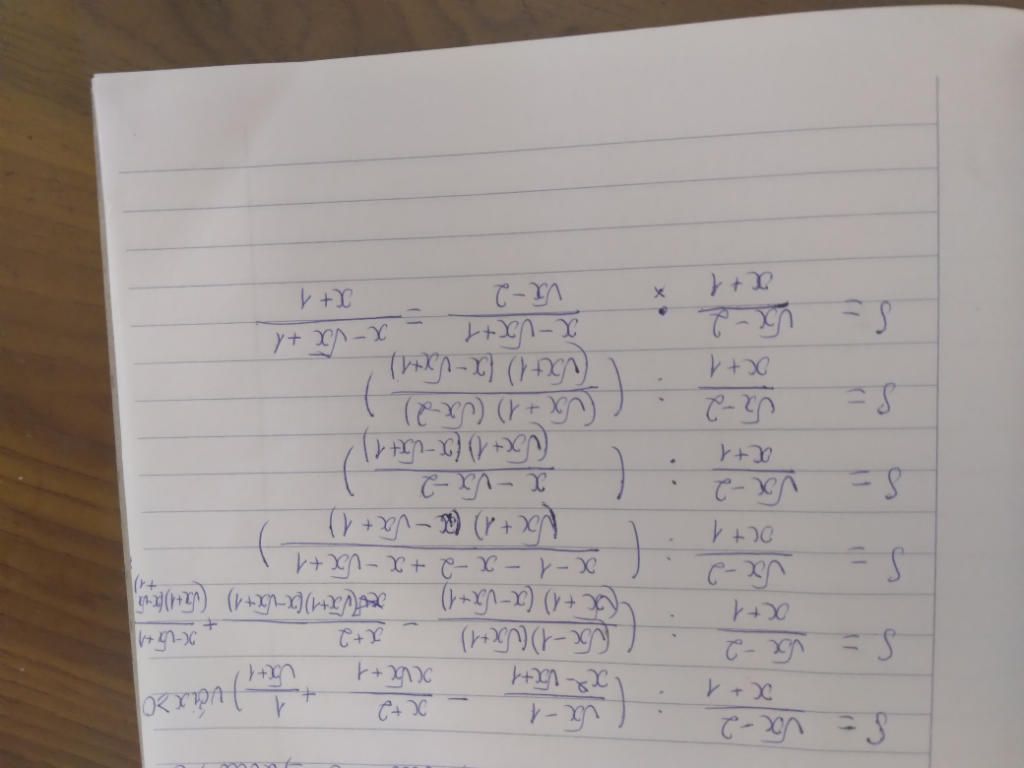 S = \frac{√x-2}{x+1} : ( \frac{√x-1}{x-√x+1} - \frac{x+2}{x√x+1} + \frac{1}{√x+1} ) với x>0
S = \frac{√x-2}{x+1} : ( \frac{(√x-1)(√x+1)}{(√x+1)(x-√x+1)} - \frac{x+2}{(√x+1)(x-√x+1)} + \frac{x-√x+1}{(√x+1)(x-√x+1)}
S = \frac{√x-2}{x+1} : ( \frac{x-1-x-2+x-√x+1}{(√x+1)(x-√x+1)} )
S = \frac{√x-2}{x+1} : ( \frac{x-√x-2}{(√x+1)(x-√x+1)} )
S = \frac{√x-2}{x+1} : ( \frac{(√x+1)(√x-2)}{(√x+1)(x-√x+1)} )
S = \frac{√x-2}{x+1} × \frac{x-√x+1}{√x-2} = \frac{x-√x+1}{x+1}